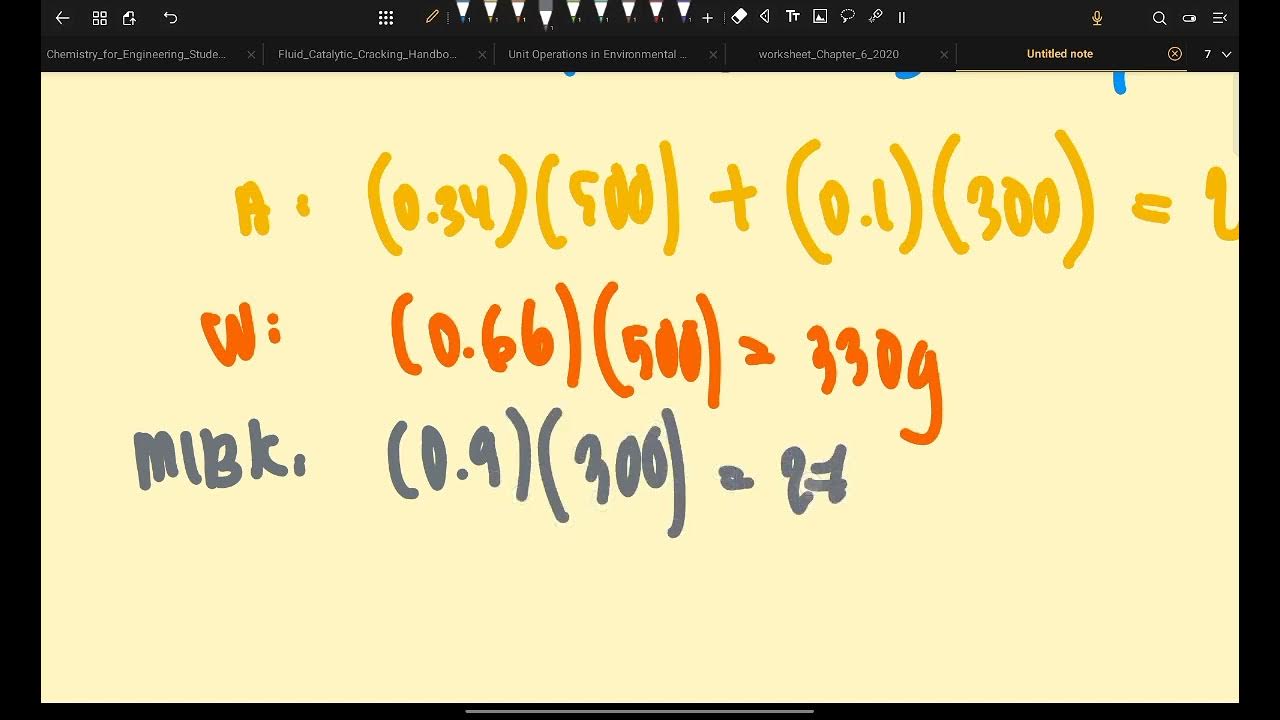 Chemistry_for_Engineering_Stude... Fluid_Catalytic_Cracking_Handbo... Unit Operations in Environmental ... worksheet_Chapter_6_2020 Untitled note 7
A: (0.34)(500) + (0.1)(300) = 2
W: (0.66)(500) = 330g
MIBK: (0.9)(300) = 27